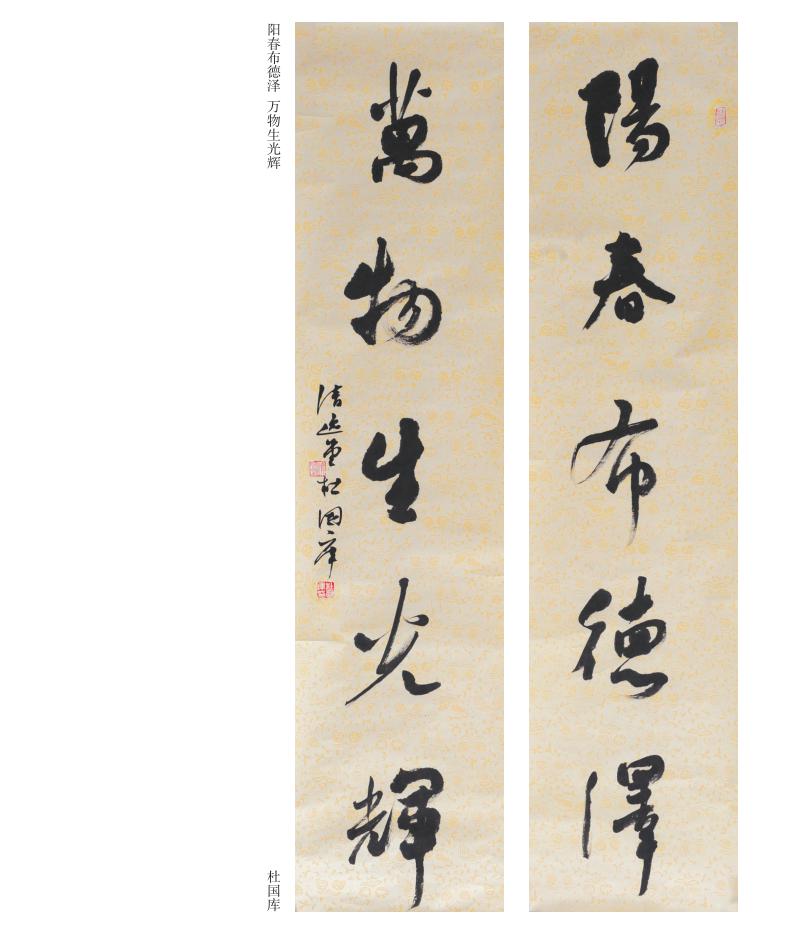 陽春布德澤
萬物生光輝
清逸堂杜国库
阳春布德泽 万物生光辉
杜国库